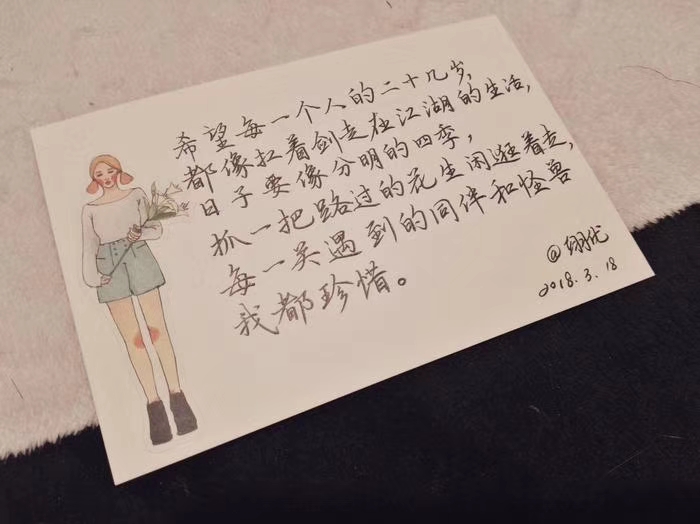 希望每一个人的二十几岁,
都像扛着剑走在江湖的生活,
日子要像分明的四季,
抓一把路过的花生闲逛着走,
每一关遇到的同伴和怪兽
我都珍惜。
@翊优
2018.3.18